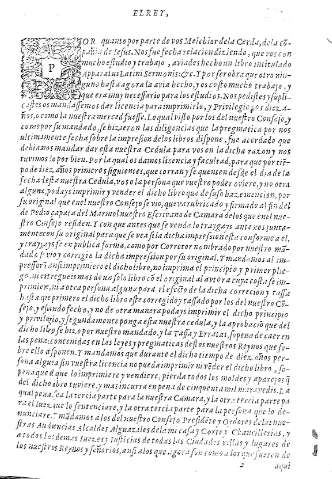 EL REY,
POR quanto por parte de vos Melchior de la Cerda, de la cõ
pañia de Iesus, Nos fue fecha relacion diziendo, que vos con
mucho estudio y trabajo, aviades hecho un libro intitulado
Apparatus Latini Sermonis: &c. Y por ser obra que otro nin-
guno hasta agora la avia hecho, y os costo mucho trabajo, y
que era muy necessario para los estudios. Nos pedistes y supli-
castes os mandassemos dar licencia para imprimirle, y Privilegio por diez a-
ños, o como la nuestra merced fuesse. Lo qual visto por los del nuestro Consejo, y
como por su mandado se hizieron las diligencias que la pregmatica por nos
ultimamente fecha sobre la impression de los libros dispone fue acordado que
deviamos mandar dar esta nuestra Cedula para vos en la dicha razon y nos
tuvimos lo por bien. Por la qual os damos licencia y facultad, para que por tiẽ-
po de diez años primeros siguientes, que corran y se quenten desde el dia de la
fecha desta nuestra Cedula, vos o la persona que vuestro poder oviere, y no otra
alguna, podays imprimir y vender el dicho libro que de suso haze mencion, por
su original que en el nuestro Consejo se vio, que va rubricado y firmado al fin del
de Pedro çapata del Marmol nuestro Escrivano de Camara de los que en el nue-
stro Consejo residen. Y con que antes que se venda lo traygays ante nos junta-
mente con su original para que se vea si la dicha impression esta conforme a el,
y traygays fe en publica forma, como por Corretor nombrado por nuestro man-
dado se vio y corrigio la dicha impression por su original. Y mandamos al im-
pressor que ansi imprimiere el dicho libro, no imprima el principio y primer plie-
go, ni entregue mas de un solo libro cõ el original al autor
primiere, ni a otra persona alguna para el efecto de la dicha correction y tassa
hasta que primero el dicho libro este corregido y tassado por los del nuestro Cõ-
sejo, y estando fecho, y no de otra manera podays imprimir el dicho principio
y privilegio, y seguidamente ponga esta nuestra cedula, y la aprobacio que del
dicho libro se hizo por nuestro mandado, y la Tassa y Erratas, so pena de caer en
las penas contenidas en las leyes y pregmaticas destos nuestros Reynos que so-
bre ello disponen. Y mandamos que durante el dicho tiempo de diez años per-
sona alguna sin vuestra licencia no pueda imprimir ni vender el dicho libro, so
pena que el que lo imprimiere y vendiere, pierda todos los moldes y aparejos
del dicho libro tuviere, y mas incurra en pena de cinquenta mil maravedis. La
qual pena sea la tercia parte para la nuestra Camara, y la otra tercia parte pa-
ra el Iuez que lo sentenciare, y la otra tercia parte para la persona que lo de-
nunciare. Y mandamos a los del nuestro Consejo Presidẽte y Oydores de las nue-
stras Audiencias, Alcaldes Alguaziles de la mi casa y Corte y Chancillerias, y
a todos los demas Iuezes y Iusticias de todas las Ciudades villas y lugares de
los nuestros Reynos y señorios, ansi a los que agora son como a los que fueren de
2 aqui